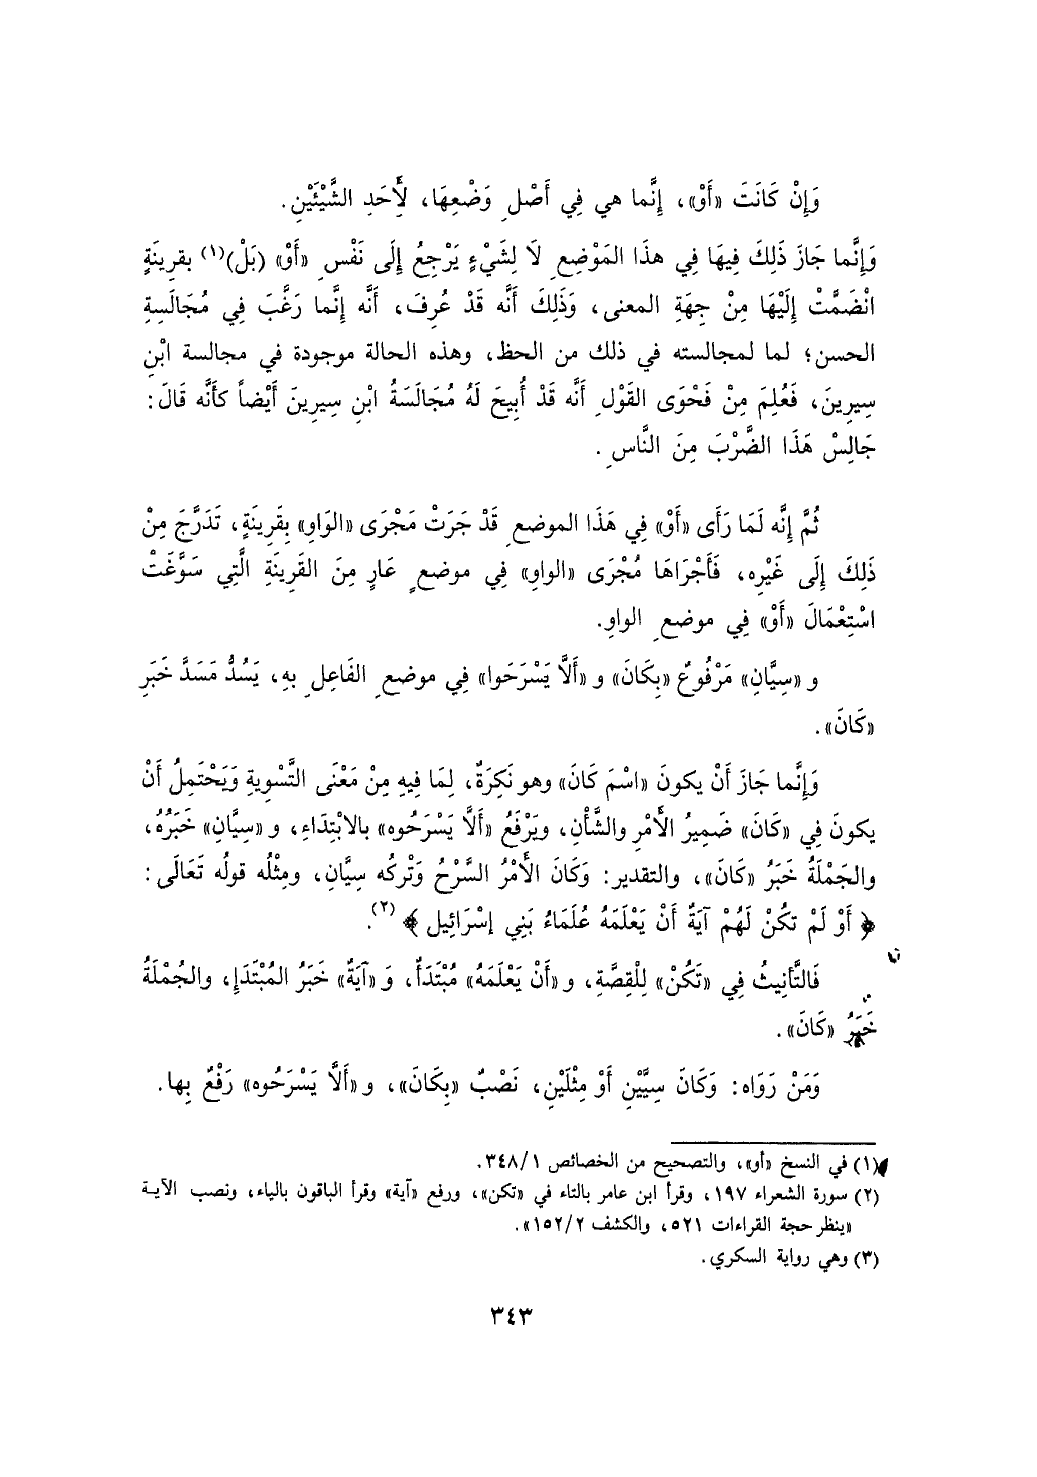 وَإِنْ كَانَتَ «أَوْ»، إِنَّما هي فِي أَصْلِ وَضْعِهَا، لِأَحَدِ الشَّيْئَيْنِ.
وَإِنَّما جَازَ ذَلِكَ فِيهَا فِي هذَا المَوْضِعِ لَا لِشَيْءٍ يَرْجِعُ إِلَى نَفْسِ «أَوْ» (بَلْ)(١) بقرِينَةٍ
انْضَمَّتْ إِلَيْهَا مِنْ جِهَةِ المعنى، وَذَلِكَ أَنَّه قَدْ عُرِفَ، أَنَّه إِنَّما رَغَّبَ فِي مُجَالَسِةِ
الحسن؛ لما لمجالسته في ذلك من الحظ، وهذه الحالة موجودة في مجالسة ابْنِ
سِيرِينَ، فَعُلِمَ مِنْ فَحْوَى القَوْلِ أَنَّه قَدْ أُبِيحَ لَهُ مُجَالَسَةُ ابْنِ سِيرِينَ أَيْضاً كأنَّه قَالَ:
جَالِسْ هَذَا الضَّرْبَ مِنَ النَّاسِ.
ثُمَّ إِنَّه لَمَا رَأَى «أَوْ» فِي هَذَا الموضعِ قَدْ جَرَتْ مَجْرَى «الوَاوِ» بِقَرِينَةٍ، تَدَرَّجَ مِنْ
ذَلِكَ إِلَى غَيْرِه، فَأَجْرَاهَا مُجْرَى «الواوِ» فِي موضعٍ عَارٍ مِنَ القَرِينَةِ الَّتِي سَوَّغَتْ
اسْتِعْمَالَ «أَوْ» فِي موضعِ الواوِ.
و «سِيَّانِ» مَرْفُوعٌ «بِكَانَ» و «أَلَّا يَسْرَحَوا» فِي موضعِ الفَاعِلِ بهِ، يَسُدُّ مَسَدَّ خَبَرِ
«كَانَ».
وَإِنَّما جَازَ أَنْ يكونَ «اسْمَ كَانَ» وهو نَكِرَةٌ، لِمَا فِيهِ مِنْ مَعْنَى التَّسْوِيةِ وَيَحْتَمِلُ أَنْ
يكونَ فِي «كَانَ» ضَمِيرُ الأَمْرِ والشَّأْنِ، ويَرْفَعُ «أَلَّا يَسْرَحُوه» بالابْتِدَاءِ، و «سِيَّان» خَبَرُهُ،
والجَمْلَةُ خَبَرُ «كَانَ»، والتقدير: وَكَانَ الأَمْرُ السَّرْحُ وَتْركُه سِيَّانِ، ومِثْلُه قولُه تَعَالَى:
﴿أَوْ لَمْ تكُنْ لَهُمْ آيَةٌ أَنْ يَعْلَمَهُ عُلَمَاءُ بَنِي إِسْرَائِيل﴾(٢).
فَالتَّأنِيثُ فِي «تَكُنْ» لِلْقِصَّةِ، و «أَنْ يَعْلَمَهُ» مُبْتَدَأٌ، وَ «آيَةٌ» خَبَرُ المُبْتَدَإِ، والجُمْلَةُ
خَبَرُ «كَانَ».
وَمَنْ رَوَاه: وَكَانَ سِيَّيْنِ أَوْ مِثْلَيْنِ، نَصْبٌ «بِكَانَ»، و «أَلَّا يَسْرَحُوه» رَفْعٌ بِها.
(١) في النسخ «أو»، والتصحيح من الخصائص ٣٤٨/١.
(٢) سورة الشعراء ١٩٧، وقرأ ابن عامر بالتاء في «تكن»، ورفع «آية» وقرأ الباقون بالياء، ونصب الآية
«ينظر حجة القراءات ٥٢١، والكشف ١٥٢/٢».
(٣) وهي رواية السكري.
٣٤٣